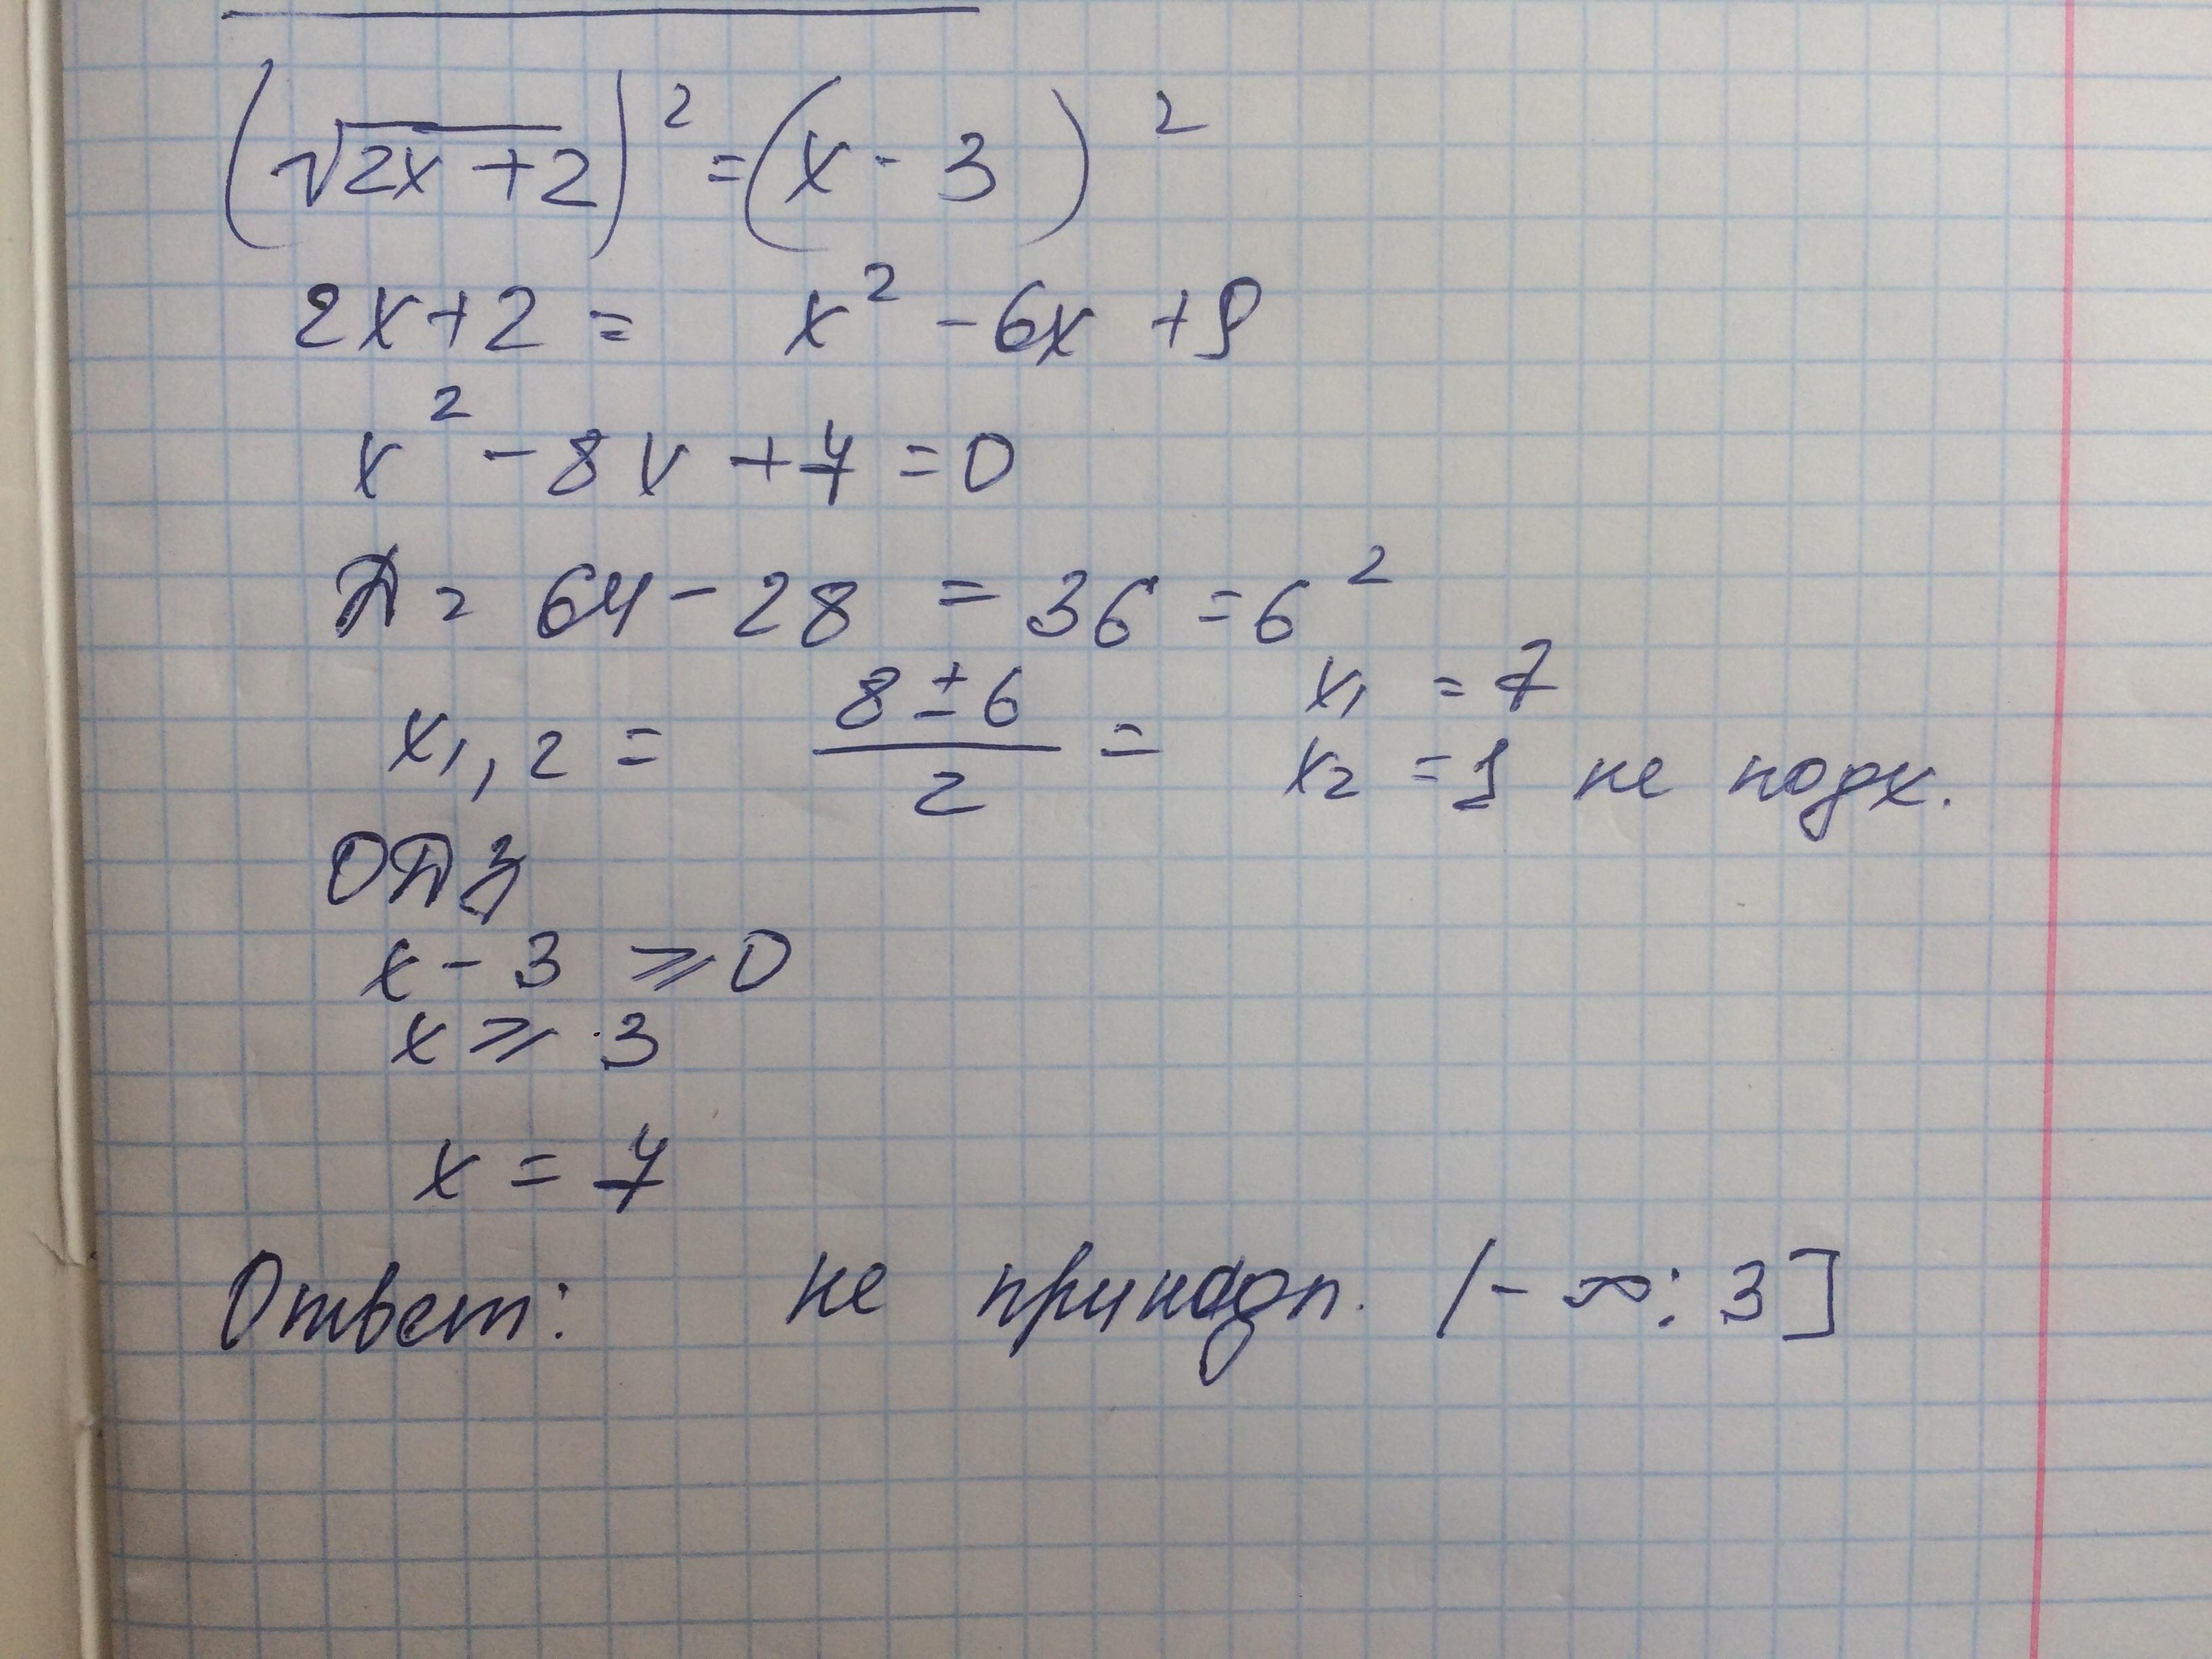 (√2x+2)² = (x - 3)²
2x+2 = x² - 6x + 9
x² - 8x + 7 = 0
Д = 64 - 28 = 36 = 6²
x₁,₂ = (8 ± 6)/2 = x₁ = 7
x₂ = 1 не подх.
ОДЗ
x - 3 ⩾ 0
x ⩾ 3
x = 7
Ответ: не принадл. (-∞; 3]